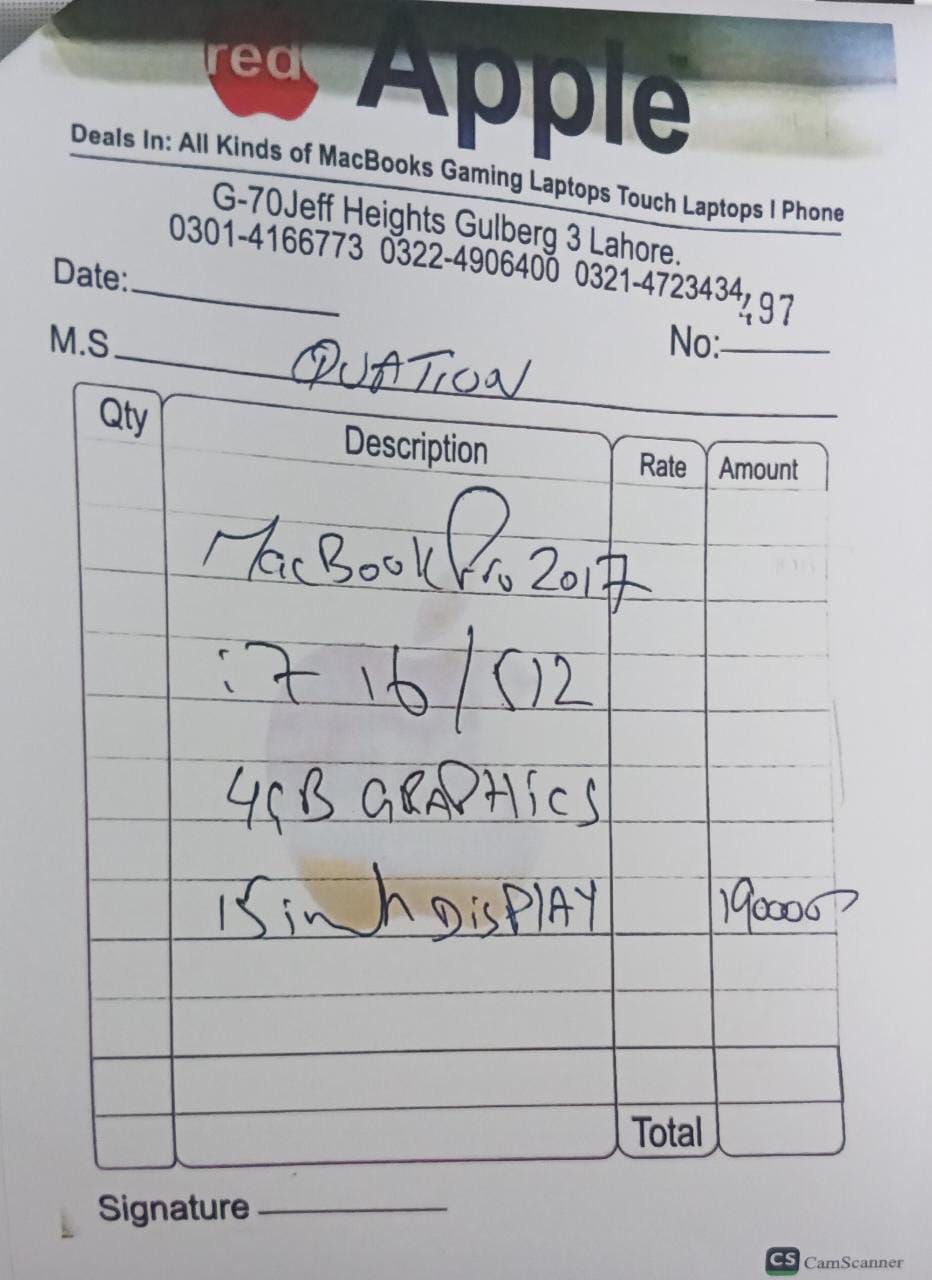 red Apple
Deals In: All Kinds of MacBooks Gaming Laptops Touch Laptops I Phone
G-70Jeff Heights Gulberg 3 Lahore.
0301-4166773 0322-4906400 0321-4723434,
497
Date:
No:
M.S QUATION
Qty Description Rate Amount
MacBook Pro 2017
i7 16/512
4GB GRAPHICS
15 inch DISPLAY 190000
Total
Signature
CS CamScanner